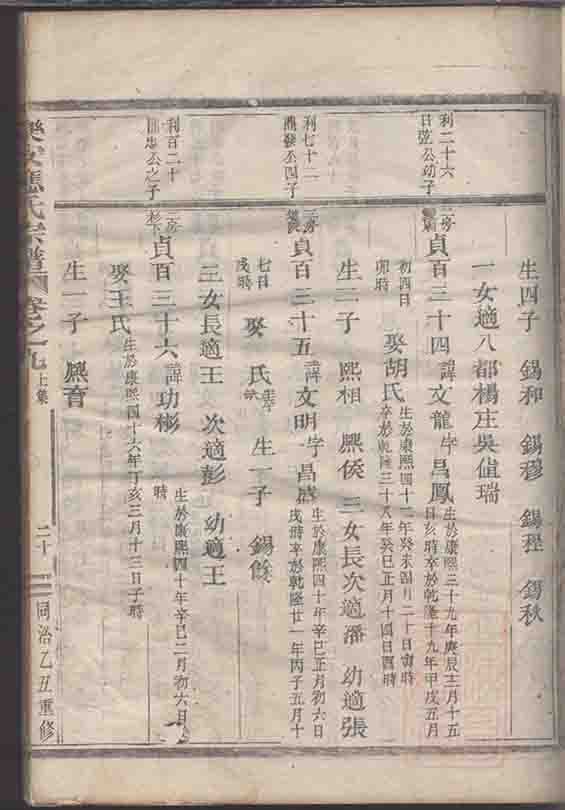 生四子 錫和 錫穆 錫程 錫秋
一女適八都楊庄吳健瑞
利二十六
日弦公幼子
二房
貞百三十四 諱文龍字昌鳳 生於康熙三十九年庚辰十二月十五
日亥時卒於乾隆十九年甲戌五月
初四日
卯時
娶胡氏 生於康熙四十二年癸未四月二十日寅時
卒於乾隆三十八年癸巳正月十四日酉時
生二子 熙相 熙侯 三女長次適潘 幼適張
利七十二
四子
二房
貞百三十五 諱文明字昌盛 生於康熙四十年辛巳正月初六日
戌時卒於乾隆廿一年丙子五月十
七日
戌時
娶 氏 生一子 錫俊
三女長適王 次適彭 幼適王
利百二十
忠公之子
二房
杉下
貞百三十六 諱功彬 生於康熙四十年辛巳二月初六日
時
娶王氏 生於康熙四十六年丁亥三月十三日子時
生一子 熙育
應氏宗譜 卷之九 上集 二十 同治乙丑重修